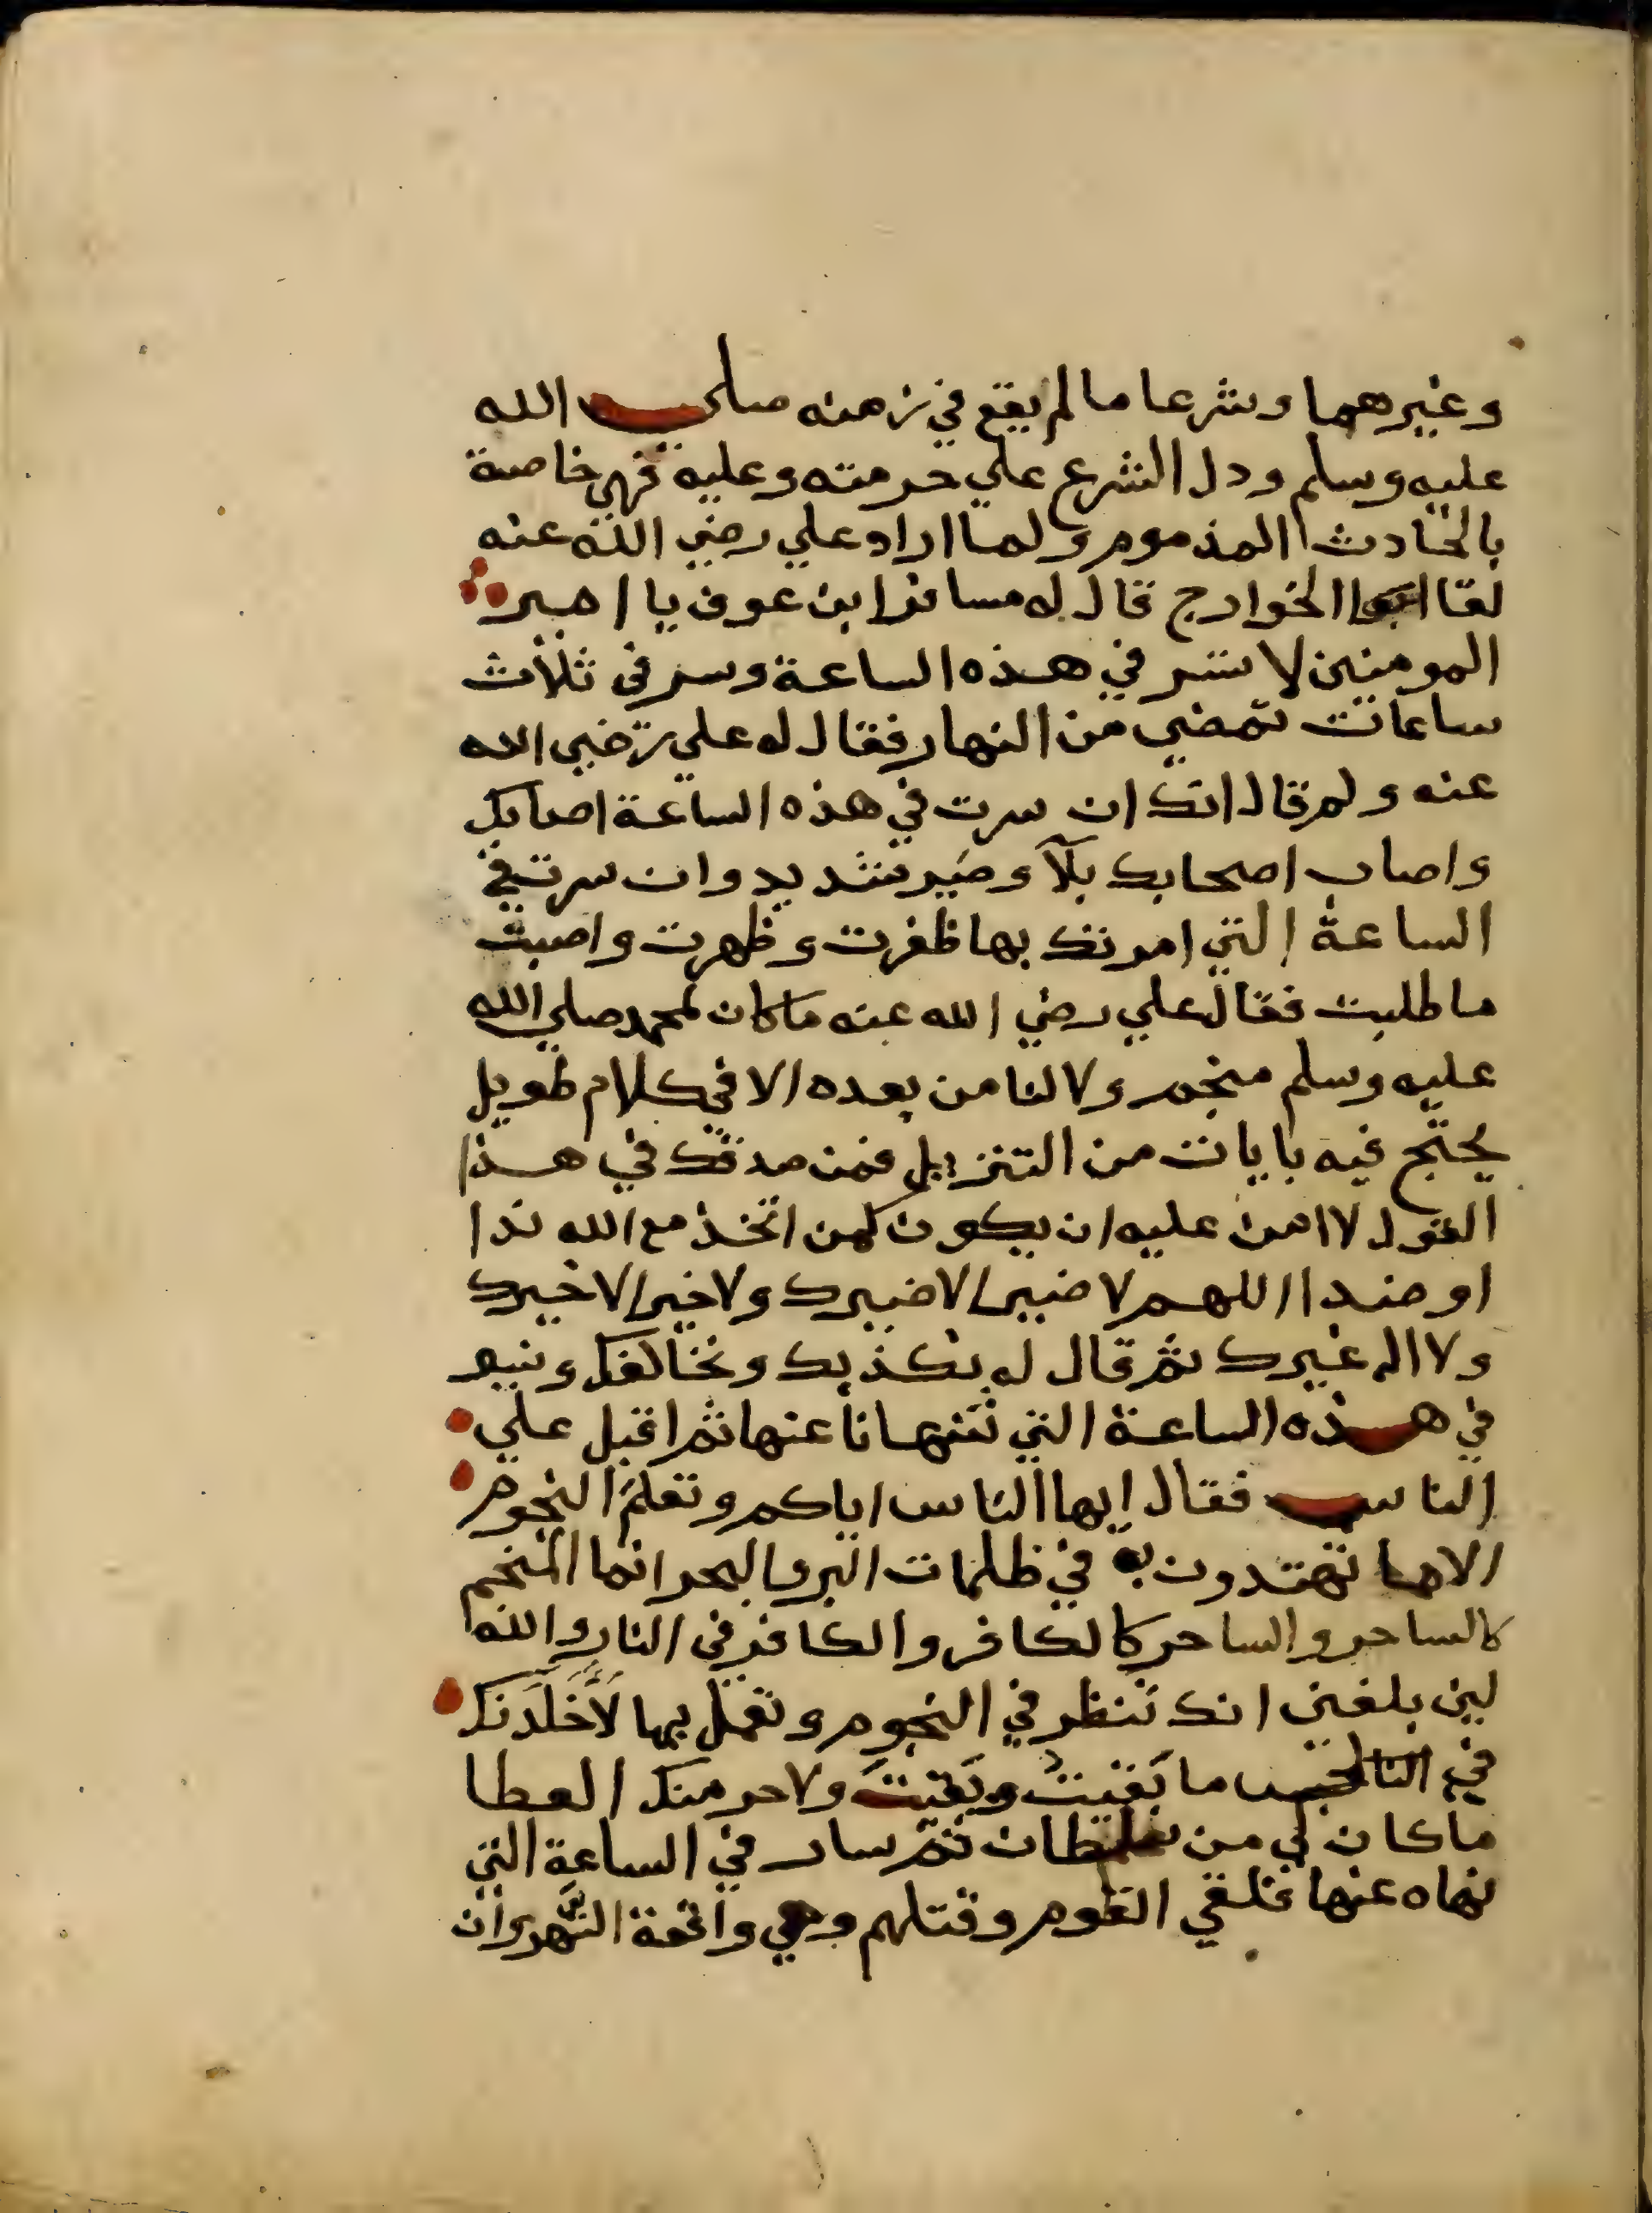 وغيرهما وشرعا ما لم يقع في زمنه صلي الله
عليه وسلم ودل الشرع علي حرمته وعليه فهي خاصة
بالحادث المذموم ولما اراد علي رضي الله عنه
لقا الخوارج قال له مسافر ابن عوف يا امير
المومنين لا تسر في هذه الساعة وسر في ثلاث
ساعات تمضي من النهار فقال له علي رضي الله
عنه ولم قال انك ان سرت في هذه الساعة اصابك
واصاب اصحابك بلآ وضير شديد وان سرت في
الساعة التي امرتك بها ظفرت وظهرت واصبت
ما طلبت فقال علي رضي الله عنه ما كان لمحمد صلي الله
عليه وسلم منجم ولا لنا من بعده الا في كلام طويل
يحتج فيه بايات من التنزيل فمن صدقك في هذا
القول لا امن عليه ان يكون كمن اتخذ مع الله ندا
او ضدا اللهم لا ضير الا ضيرك ولا خير الا خيرك
ولا اله غيرك ثم قال له نكذبك ونخالفك ونسير
في هذه الساعة التي تنهانا عنها ثم اقبل علي
الناس فقال ايها الناس اياكم وتعلم النجوم
الا ما تهتدون به في ظلمات البر والبحر انما المنجم
كالساحر والساحر كالكافر والكافر في النار والله
لين بلغني انك تنظر في النجوم وتعمل بها لَأُخَلِّدَنَّك
في الحبس ما بَقيتُ وبَقيتَ ولاحرمنك العطا
ما كان لي من سلطان ثم سار في الساعة التي
نهاه عنها فلقي القوم وقتلهم وهي واقعة النَّهروان